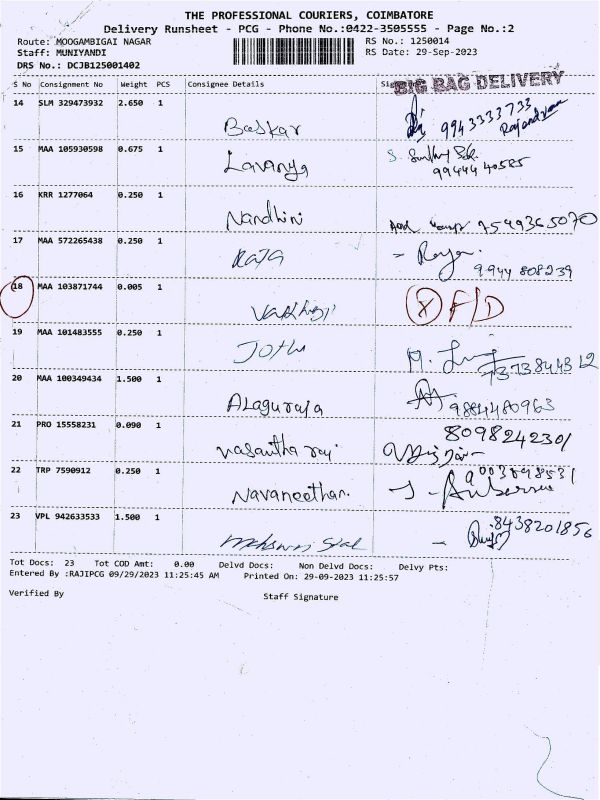 THE PROFESSIONAL COURIERS, COIMBATORE
Delivery Runsheet - PCG - Phone No.:0422-3505555 - Page No.:2
Route: MOOGAMBIGAI NAGAR RS No.: 1250014
Staff: MUNIYANDI RS Date: 29-Sep-2023
DRS No.: DCJB125001402
S No Consignment No Weight PCS Consignee Details
BIG BAG DELIVERY
14 SLM 329473932 2.650 1 Baskar 9943333733
15 MAA 105930598 0.675 1 Lavanya 9944440585
16 KRR 1277064 0.250 1 Nandhini 7549365070
17 MAA 572265438 0.250 1 Raja - Raja. 9944 808239
18 MAA 103871744 0.005 1 X F/D
19 MAA 101483555 0.250 1 Jothi
20 MAA 100349434 1.500 1 Alaguraja 9884480963
21 PRO 15558231 0.090 1 Vasantha raj 8098242301
22 TRP 7590912 0.250 1 Navaneethan.
23 VPL 942633533 1.500 1 8438201856
Tot Docs: 23 Tot COD Amt: 0.00 Delvd Docs: Non Delvd Docs: Delvy Pts:
Entered By :RAJIPCG 09/29/2023 11:25:45 AM Printed On: 29-09-2023 11:25:57
Verified By Staff Signature